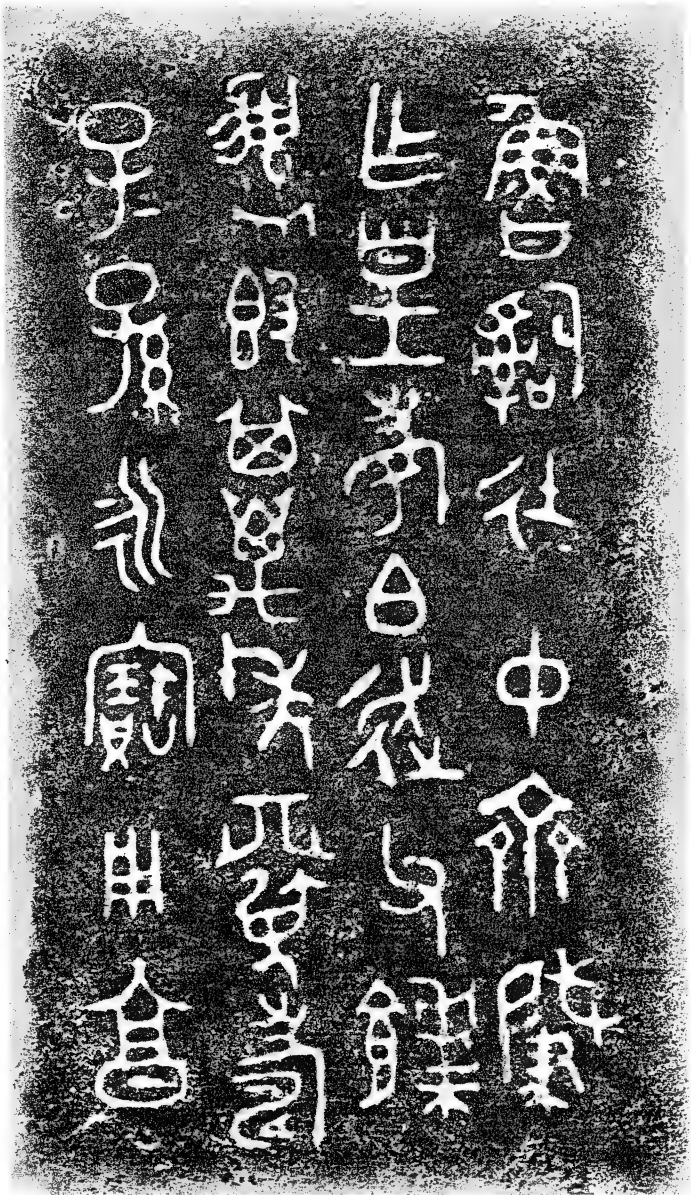 魯𤔲徒中齊肇
乍皇考白走父餴
盨𣪘其萬年眉壽
子子孫孫永寶用享